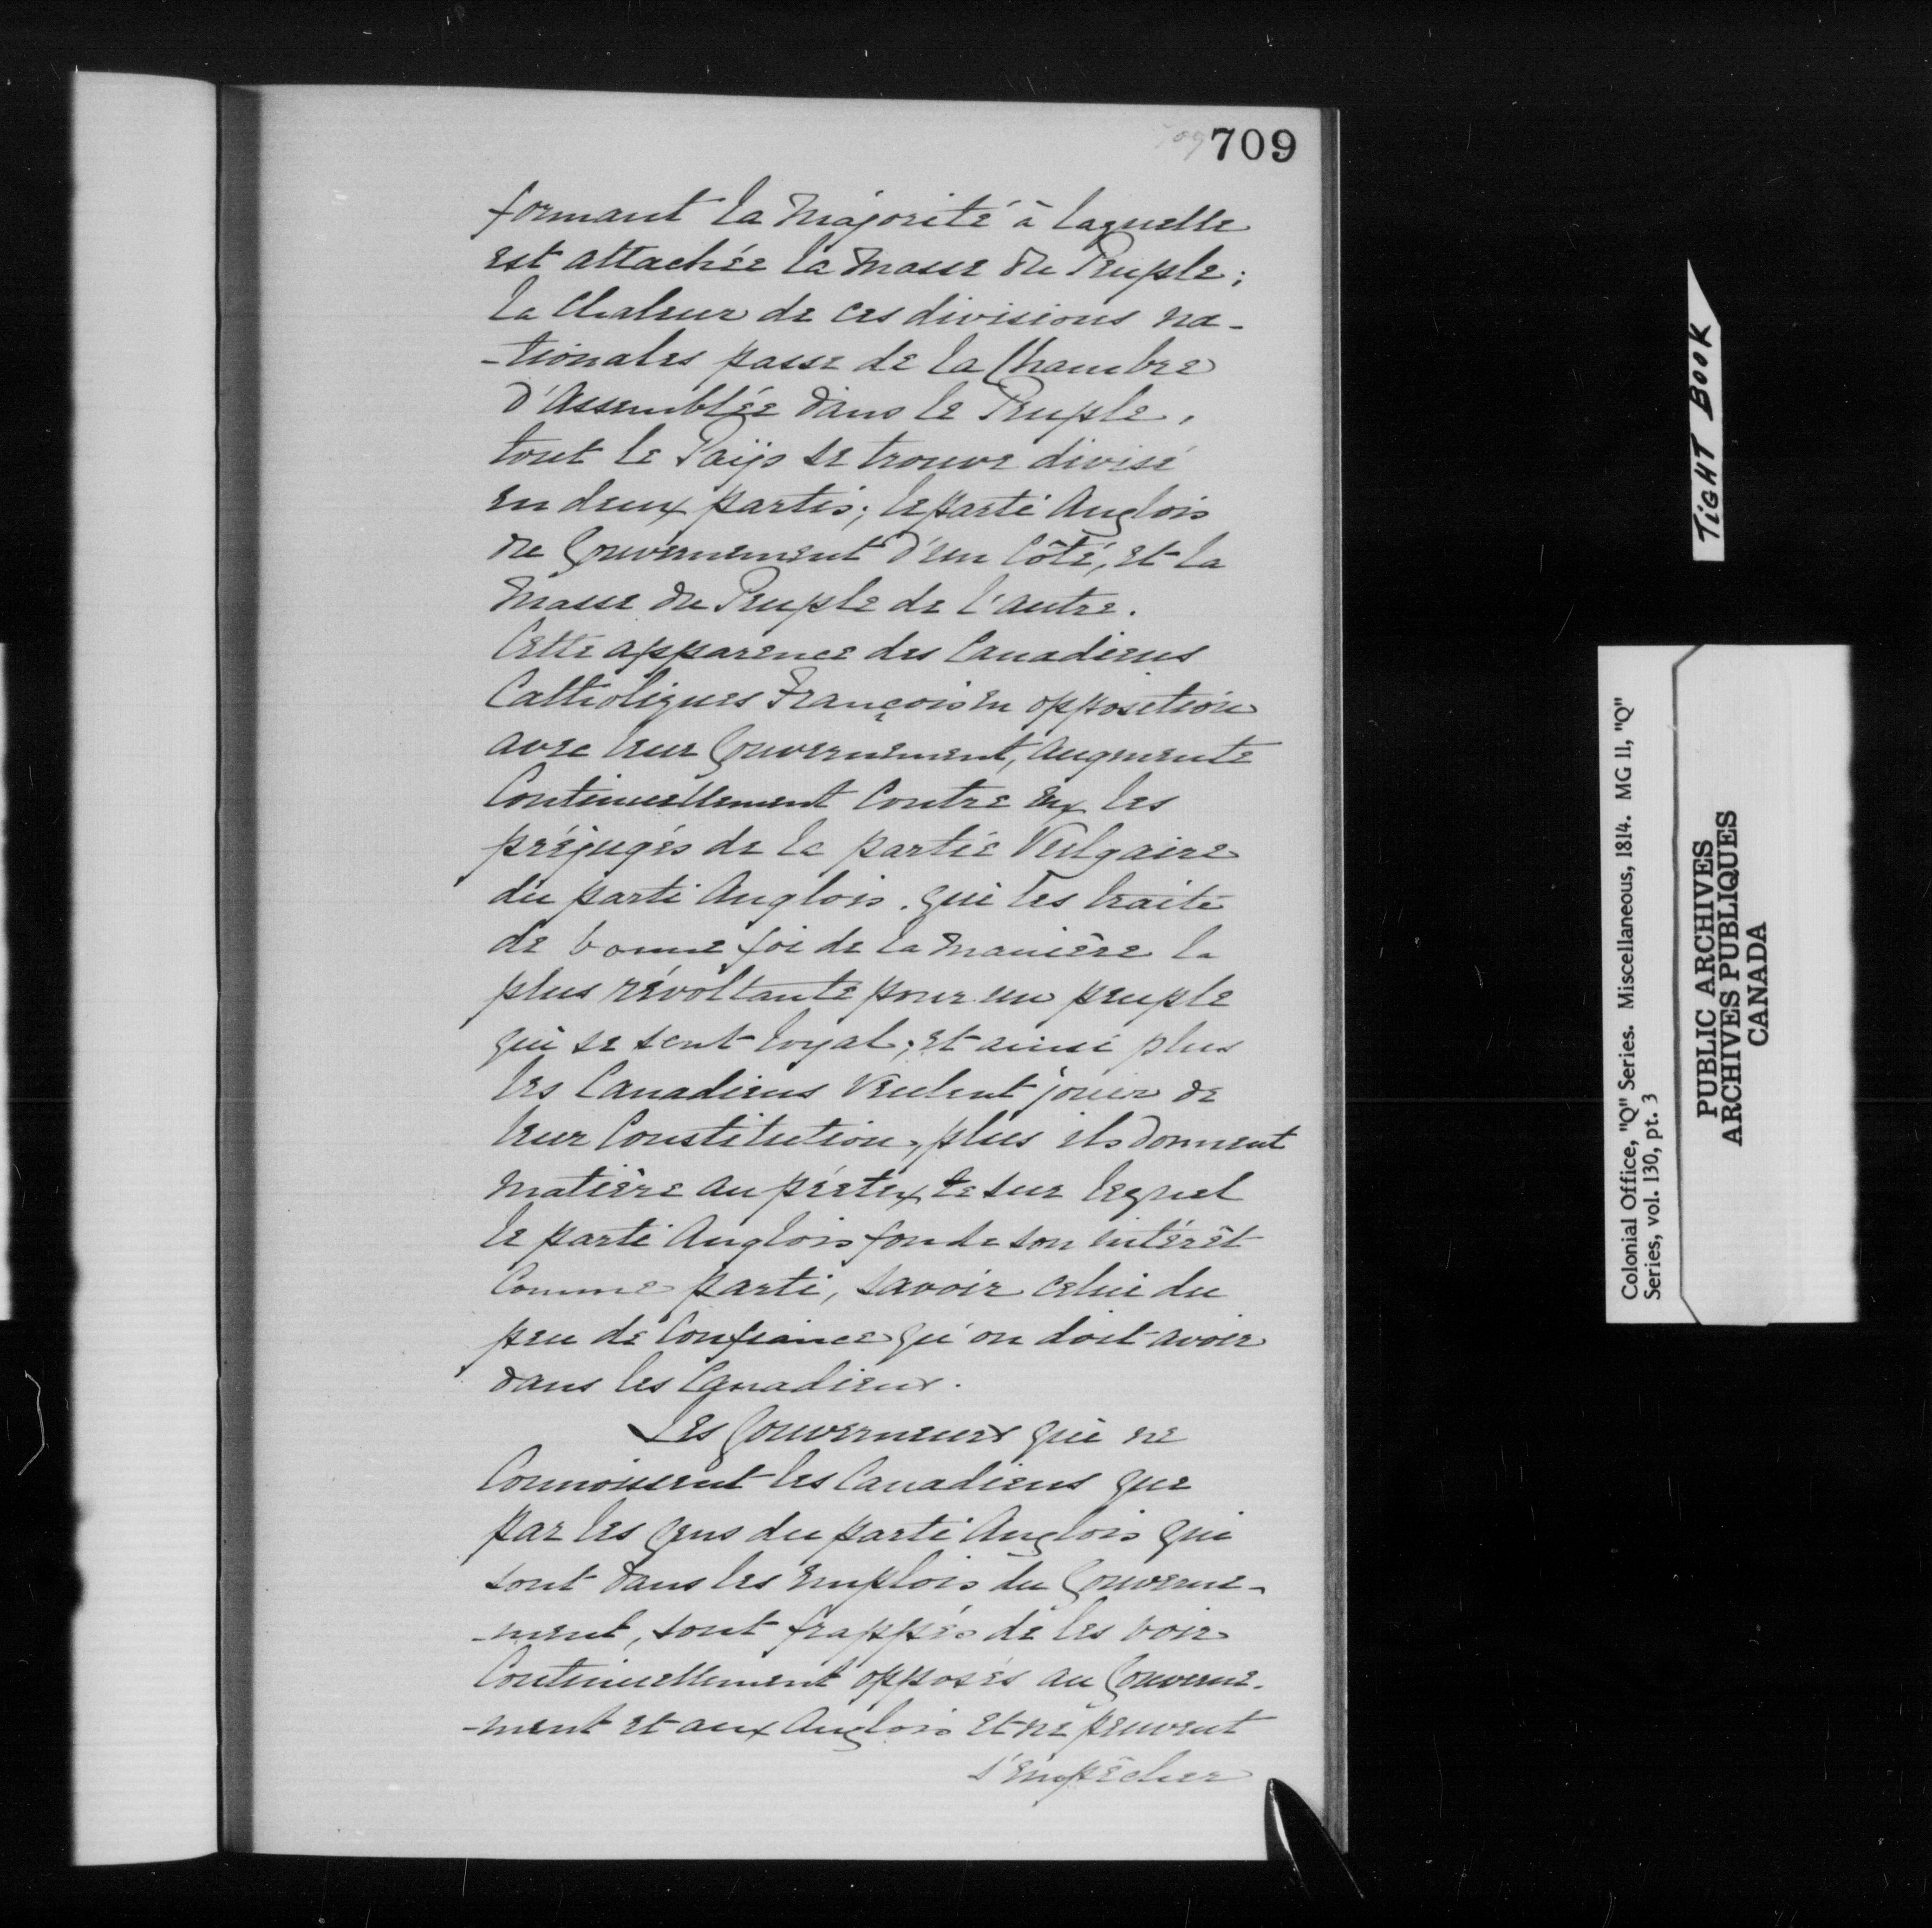 709 709
formant la Majorité à laquelle
est attachée la Masse du Peuple;
la Chaleur de ces divisions na-
-tionales passe de la Chambre
d'Assemblée dans le Peuple,
tout le Païjs se trouve divisé
en deux partis; le parti Anglois
du Gouvernement d'un Côté, et la
Masse du Peuple de l'autre.
Cette apparence des Canadiens
Catholiques François en opposition
avec leur Gouvernement, augmente
Continuellement Contre eux les
préjugés de la partie Vulgaire
du parti Anglois, qui les traite
de bonne foi de la Manière la
plus révoltante pour un peuple
qui se sent loyal; et ainsi plus
les Canadiens Veulent jouir de
leur Constitution, plus ils donnent
Matière au prétexte sur lequel
le parti Anglois fonde son intérêt
Comme parti, savoir celui du
peu de Confiance qu'on doit avoir
dans les Canadiens.
Les Gouverneurs qui ne
Connoissent les Canadiens que
par les gens du parti Anglois qui
sont dans les emplois du Gouverne-
-ment, sont frappés de les voir
Continuellement opposés au Gouverne-
-ment et aux Anglois et ne peuvent
s'empêcher
TIGHT BOOK
Colonial Office, "Q" Series. Miscellaneous, 1814. MG 11, "Q"
Series, vol. 130, pt. 3
PUBLIC ARCHIVES
ARCHIVES PUBLIQUES
CANADA